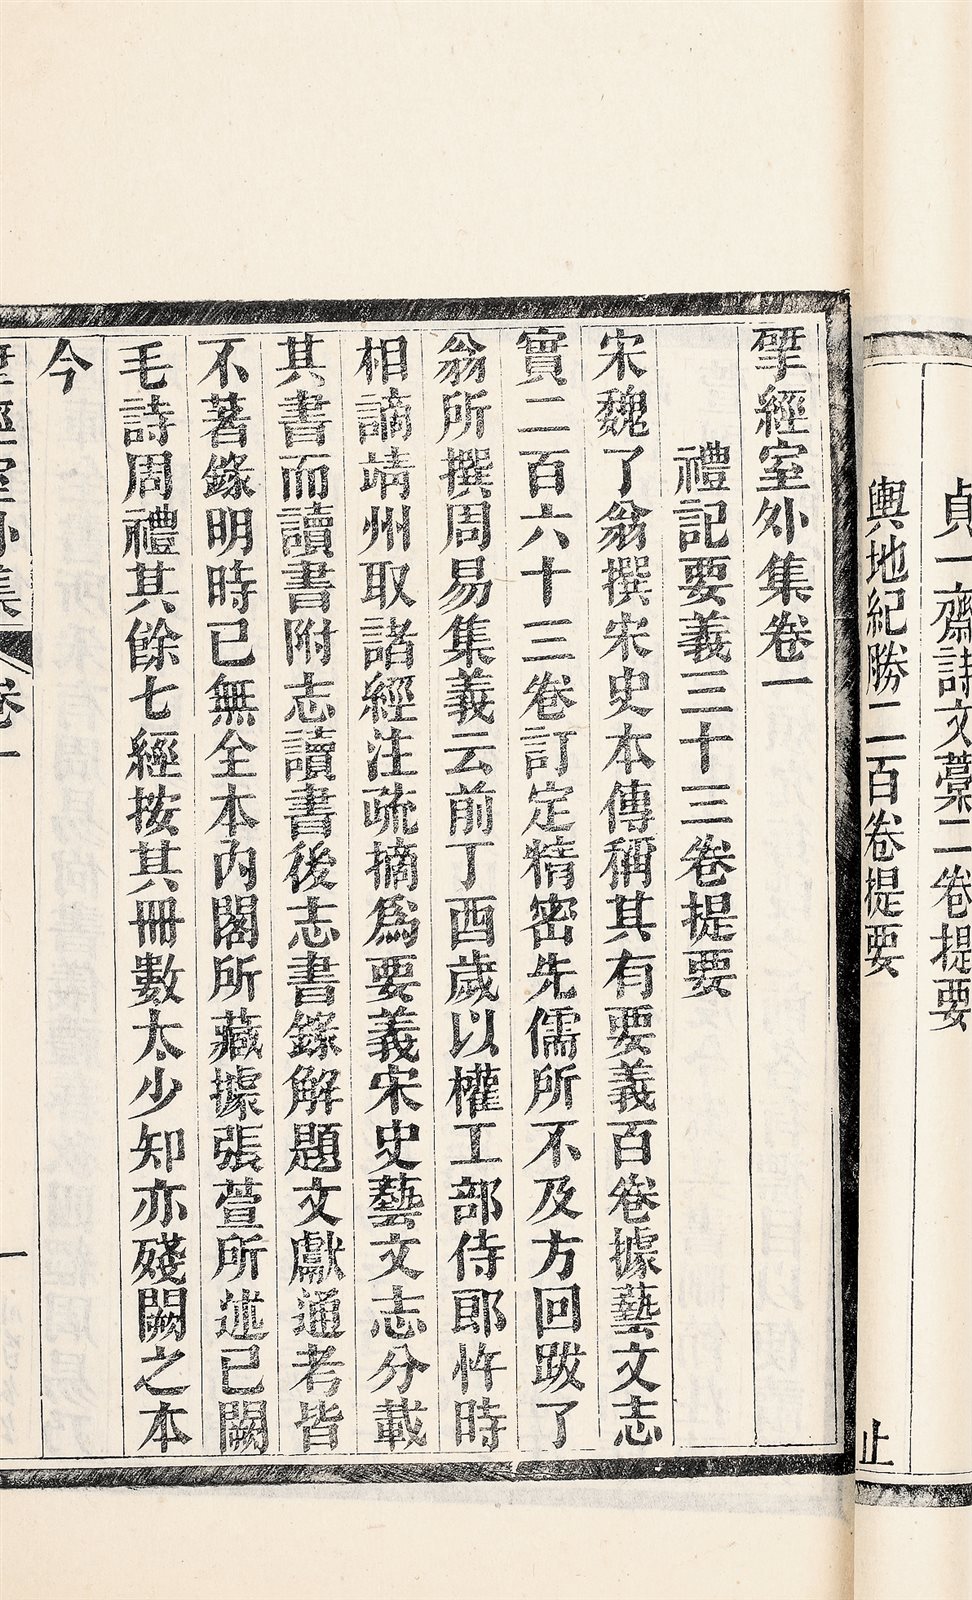 貞一齋詩文藁二卷提要
輿地紀勝二百卷提要
止
揅經室外集卷一
禮記要義三十三卷提要
宋魏了翁撰宋史本傳稱其有要義百卷據藝文志
實二百六十三卷訂定精密先儒所不及方回跋了
翁所撰周易集義云前丁酉歲以權工部侍郎忤時
相謫靖州取諸經注疏摘爲要義宋史藝文志分載
其書而讀書附志讀書後志書錄解題文獻通考皆
不著錄明時已無全本內閣所藏據張萱所述已闕
毛詩周禮其餘七經按其冊數太少知亦殘闕之本
今
揅經室外集
卷一
一